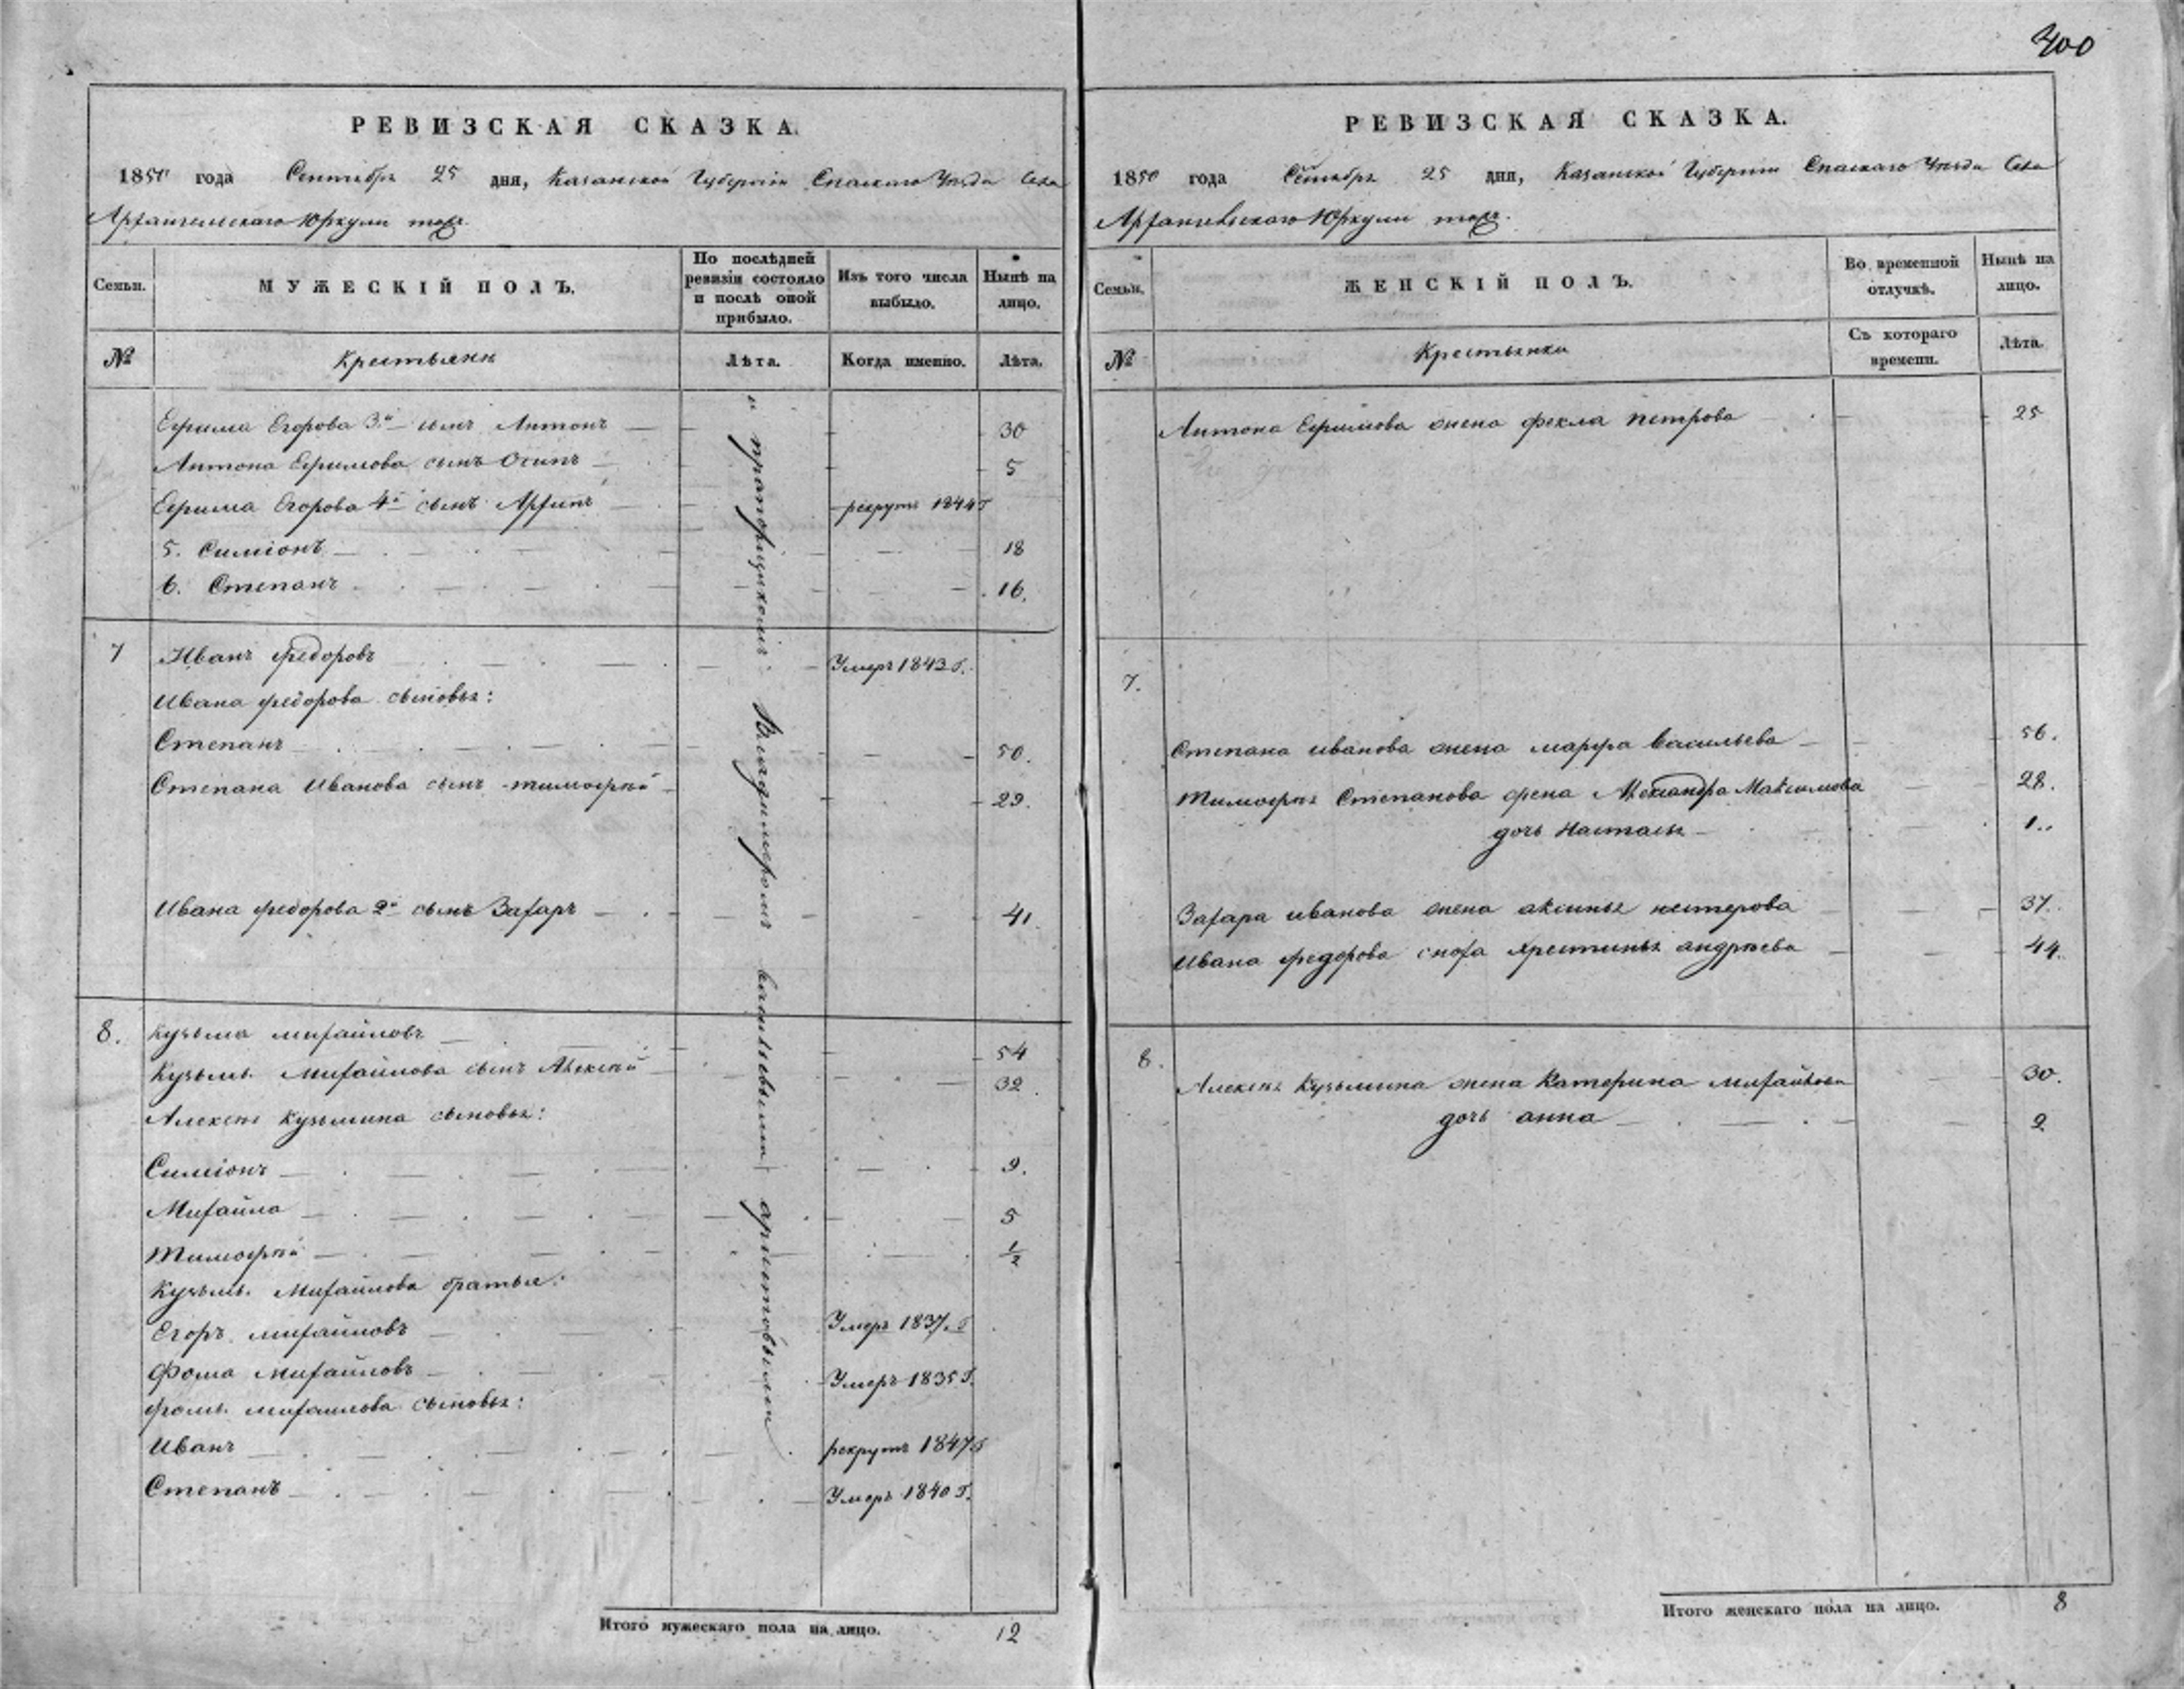 400
РЕВИЗСКАЯ СКАЗКА.
1850 года Сентября 25 дня, Казанской Губернiи Спаскаго Уѣзда Села
Архангельскаго Юркули тожъ.
Семьи.
МУЖЕСКІЙ ПОЛЪ.
По послѣдней ревизіи состояло и послѣ оной прибыло.
Изъ того числа выбыло.
Нынѣ на лицо.
№
Крестьяне
Лѣта.
Когда именно.
Лѣта.
Ефима Егорова 3й сынъ Антонъ 30
Антона Ефимова сынъ Осипъ 5
Ефима Егорова 4й сынъ Архипъ рекрутъ 1844 г
5. Симіонъ 18
6. Степанъ 16.
7 Иванъ Федоровъ Умеръ 1843 г.
Ивана Федорова сыновья:
Степанъ 50.
Степана Иванова сынъ тимофѣй 29.
Ивана Федорова 2й сынъ Захаръ 41.
8. Кузьма михайловъ 54
Кузьмы Михайлова сынъ Алексѣй 32.
Алексѣя Кузьмина сыновья:
Симіонъ 9.
Михайла 5
Тимофѣй 1/2
Кузьмы Михайлова братья:
Егоръ михайловъ Умеръ 1837 г
Фома Михайловъ Умеръ 1835 г.
фомы михайлова сыновья:
Иванъ рекрутъ 1847 г
Степанъ Умеръ 1840 г.
и прапорщикомъ Владимеромъ Васильевымъ
Итого мужескаго пола на лицо. 12
РЕВИЗСКАЯ СКАЗКА.
1850 года Сентября 25 дня, Казанской Губерніи Спаскаго Уѣзда Села
Архангельскаго Юркули тожъ.
Семьи.
ЖЕНСКІЙ ПОЛЪ.
Во временной отлучкѣ.
Нынѣ на лицо.
№
Крестьянки
Съ котораго времени.
Лѣта.
Антона Ефимова жена фекла петрова 25
7.
Степана иванова жена марфа васильева 56.
Тимофѣя Степанова жена Александра Максимова 28.
дочь Настасья 1..
Захара иванова жена аксинья нестерова 37.
Ивана федорова сноха хрестинья андрѣева 44.
8.
Алексѣя Кузьмина жена Катерина михайлова 30.
дочь анна 2
Итого женскаго пола на лицо. 8